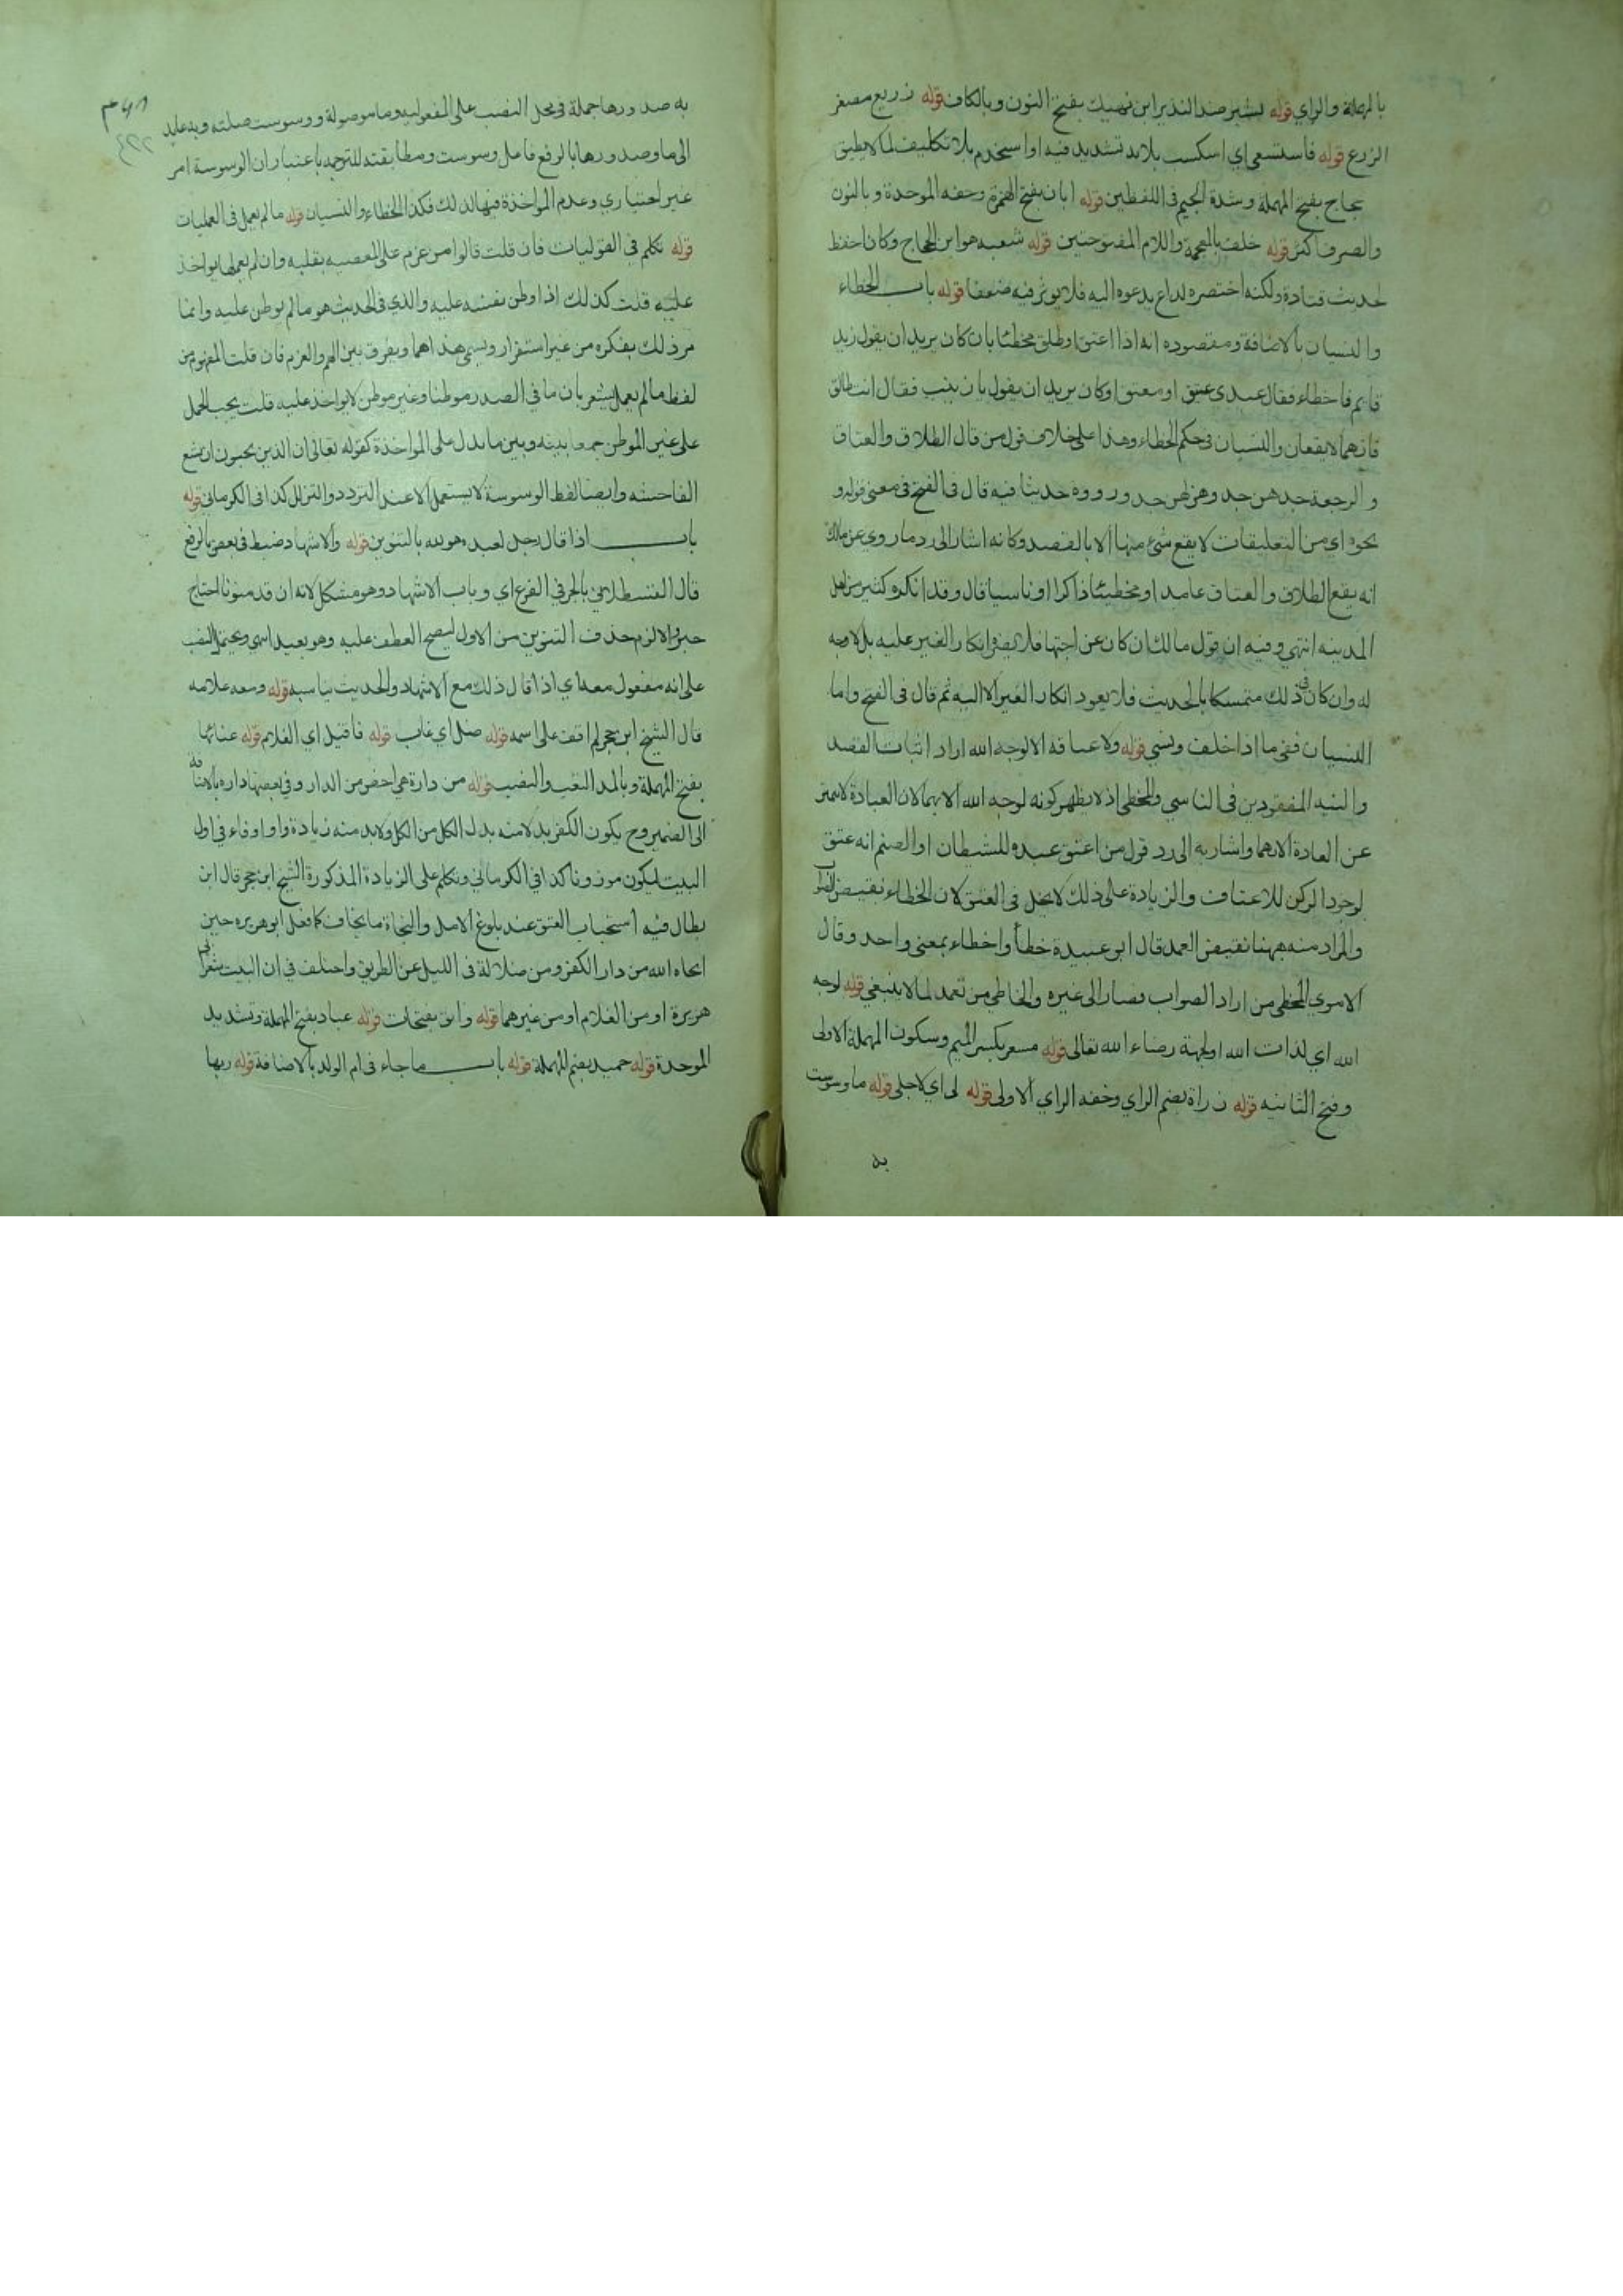 بالمهملة والزاي قوله بشير ضد النذير ابن نهيك بفتح النون وبالكاف قوله زريع مصغر
الزرع قوله فاستسعي اي استكسب بلا بد تشديد فيه او استخدم بلا تكليف لما لا يطيق
حجاج بفتح المهملة وشدة الجيم في اللفظين قوله ابان بفتح الهمزة وخفه الموحدة وبالنون
والصرف اكثر قوله خلف بالمعجمة واللام المفتوحتين قوله شعبه هو ابن الحجاج وكان احفظ
لحديث قتادة ولكنه اختصره لداع يدعوه اليه فلا يوثر فيه ضعفا قوله باب الخطاء
والنسيان بالاضافة ومقصوده انه اذا اعتق او طلق مخطئا بان كان يريد ان يقول زيد
قايم فاخطاء فقال عبدي عتق او معتق او كان يريد ان يقول يا زينب فقال انت طالق
فانهما لا يقعان والنسيان في حكم الخطاء وهذا على خلاف قول من قال الطلاق والعتاق
والرجعة جدهن جد وهزلهن جد ورووه حديثا فيه قال في الفتح في معنى قوله و
نحوه اي من التعليقات لا يقع شئ منها الا بالقصد وكانه اشار الى رد ما روي عن مالك
انه يقع الطلاق والعتاق عامدا او مخطيئا ذاكرا او ناسيا قال وقد انكره كثير من اهل
المدينه انتهى وفيه ان قول مالك ان كان عن اجتهاد فلا يضر انكار الغير عليه بل لا وجه
له وان كان في ذلك متمسكا بالحديث فلا يعود انكار الغير الا اليه ثم قال في الفتح واما
النسيان ففي ما اذا حلف ونسي قوله ولا عتاقة الا لوجه الله اراد اثبات القصد
والنيه المفقودين في الناسي والمخطي اذ لا يظهر كونه لوجه الله الا بهما لان العبادة لا تميز
عن العادة الا بهما واشار به الى رد قول من اعتق عبده للشيطان او الصنم انه عتق
لوجود الركن للاعتاق والزيادة على ذلك لا تخل في العتق لان الخطاء نقيض الصواب
والمراد منه ههنا نقيض العمد قال ابو عبيدة خطأ واخطاء بمعنى واحد وقال
الاموي المخطي من اراد الصواب فصار الى غيره والخاطي من تعمد لما لا ينبغي قوله لوجه
الله اي لذات الله او لجهة رضاء الله تعالى قوله مسعر بكسر الميم وسكون المهملة الاولى
وفتح الثانيه قوله زرارة بضم الزاي وخفه الراي الاولى قوله لي اي لاجلي قوله ما وسوست
به
به صدورها جملة في محل النصب على المفعوليه وما موصولة ووسوست صلته وبه عايد
الى ما وصدورها بالرفع فاعل وسوست ومطابقته للترجمه باعتبار ان الوسوسة امر
غير اختياري وعدم المواخذة فيها لذلك فكذا الخطاء والنسيان قوله ما لم تعمل في العمليات
قوله تكلم في القوليات فان قلت قالوا من عزم على المعصيه بقلبه وان لم يعملها يواخذ
عليه قلت كذلك اذا وطن نفسه عليه والذي في الحديث هو ما لم يوطن عليه وانما
مر ذلك بفكره من غير استقرار ويسمى هذا هما ويفرق بين الهم والعزم فان قلت المفهوم من
لفظ ما لم تعمل يشعر بان ما في الصدر موطنا وغير موطن لا يواخذ عليه قلت يجب الحمل
على غير الموطن جمعا بينه وبين ما يدل على المواخذة كقوله تعالى ان الذين يحبون ان تشيع
الفاحشه وايضا لفظ الوسوسة لا يستعمل الا عند التردد والتزلزل كذا في الكرماني قوله
باب اذا قال رجل لعبده هو لله بالتنوين قوله والاشهاد ضبط في بعض بالرفع
قال القسطلاني بالجر في الفرع اي وباب الاشهاد وهو مشكل لانه ان قدر منونا احتاج
خبرا والا لزم حذف التنوين من الاول ليصح العطف عليه وهو بعيد اسمي ويحتمل النصب
على انه مفعول معه اي اذا قال ذلك مع الاشهاد والحديث يناسبه قوله ومعه علامه
قال الشيخ ابن حجر لم اقف على اسمه قوله ضل اي غاب قوله فاقبل اي الغلام قوله عنائها
بفتح المهملة وبالمد التعب والنصب قوله من دارة هي اخص من الدار وفي بعضها داره بالاضافة
الى الضمير وح يكون الكفر بدلا منه بدل الكل من الكل ولا بد منه زيادة واو او فاء في اول
البيت ليكون موزونا كذا في الكرماني وتكلم على الزيادة المذكورة الشيخ ابن حجر قال ابن
بطال فيه استحباب العتق عند بلوغ الامل والنجاة ما يخاف كما فعل ابو هريره حين
انجاه الله من دار الكفر ومن ضلالة في الليل عن الطريق واختلف في ان البيت شعر ابي
هريرة او من الغلام او من غيرهما قوله وابق بفتحات قوله عباد بفتح المهملة وتشديد
الموحدة قوله حميد بضم المهملة قوله باب ما جاء في ام الولد بالاضافة قوله ربها